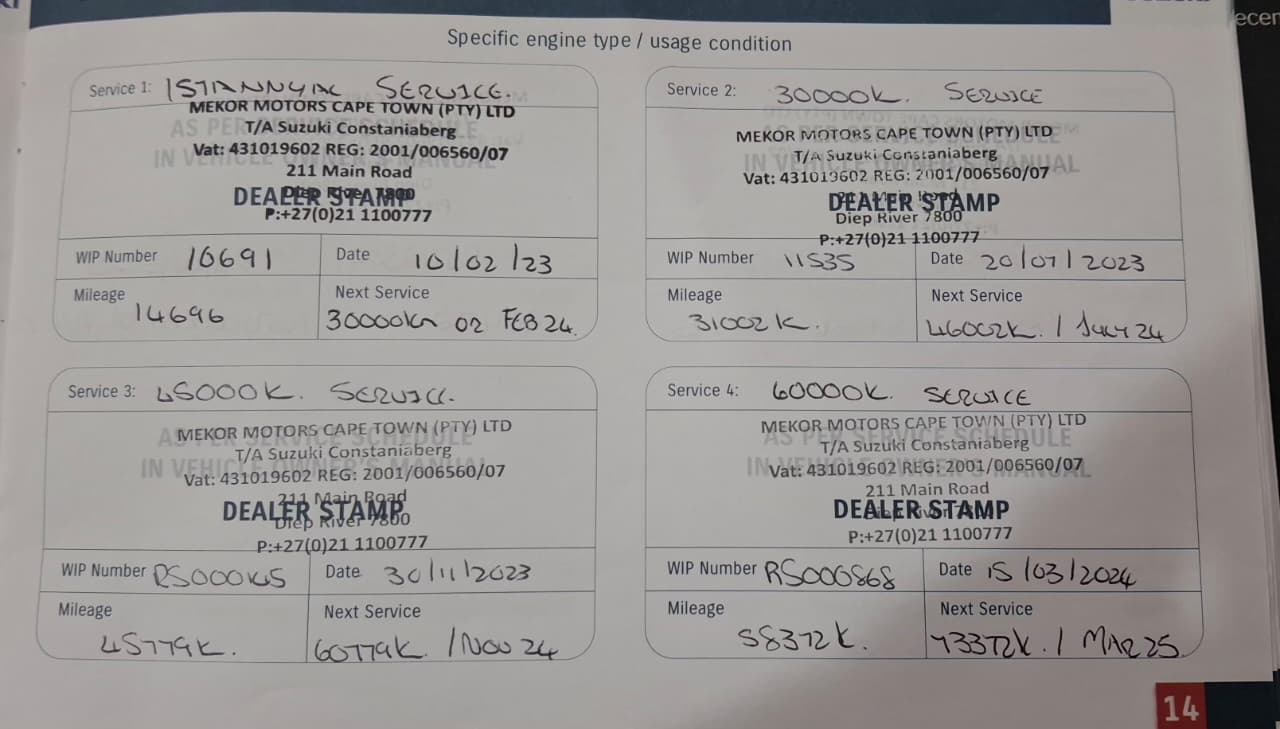 Specific engine type / usage condition
Service 1: 1ST ANNUAL SERVICE.
MEKOR MOTORS CAPE TOWN (PTY) LTD
AS PER SERVICE SCHEDULE
T/A Suzuki Constaniaberg
IN VEHICLE OWNER'S MANUAL
Vat: 431019602 REG: 2001/006560/07
211 Main Road
Diep River 7800
DEALER STAMP
P:+27(0)21 1100777
WIP Number 10691
Date 10/02/23
Mileage
14696
Next Service
30000Km 02 FEB 24.
Service 2: 30000K. SERVICE
MEKOR MOTORS CAPE TOWN (PTY) LTD
AS PER SERVICE SCHEDULE
T/A Suzuki Constaniaberg
IN VEHICLE OWNER'S MANUAL
Vat: 431019602 REG: 2001/006560/07
211 Main Road
DEALER STAMP
Diep River 7800
P:+27(0)21 1100777
WIP Number 11535
Date 20/07/2023
Mileage
31002K.
Next Service
46002K. / July 24
Service 3: 45000K. SERVICE.
MEKOR MOTORS CAPE TOWN (PTY) LTD
AS PER SERVICE SCHEDULE
T/A Suzuki Constaniaberg
IN VEHICLE OWNER'S MANUAL
Vat: 431019602 REG: 2001/006560/07
211 Main Road
DEALER STAMP
Diep River 7800
P:+27(0)21 1100777
WIP Number
Date 30/11/2023
Mileage
45779K.
Next Service
60779K. / Nov 24
Service 4: 60000K. SERVICE
MEKOR MOTORS CAPE TOWN (PTY) LTD
AS PER SERVICE SCHEDULE
T/A Suzuki Constaniaberg
IN VEHICLE OWNER'S MANUAL
Vat: 431019602 REG: 2001/006560/07
211 Main Road
DEALER STAMP
Diep River 7800
P:+27(0)21 1100777
WIP Number RS000868
Date 15/03/2024
Mileage
58372K.
Next Service
73372K. / MAR 25.
14